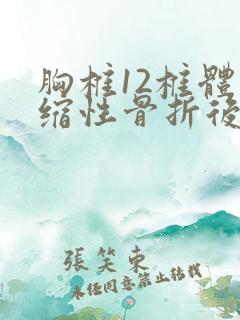 胸椎12椎體
缩性骨折後
張笑東
未任同意禁止转载